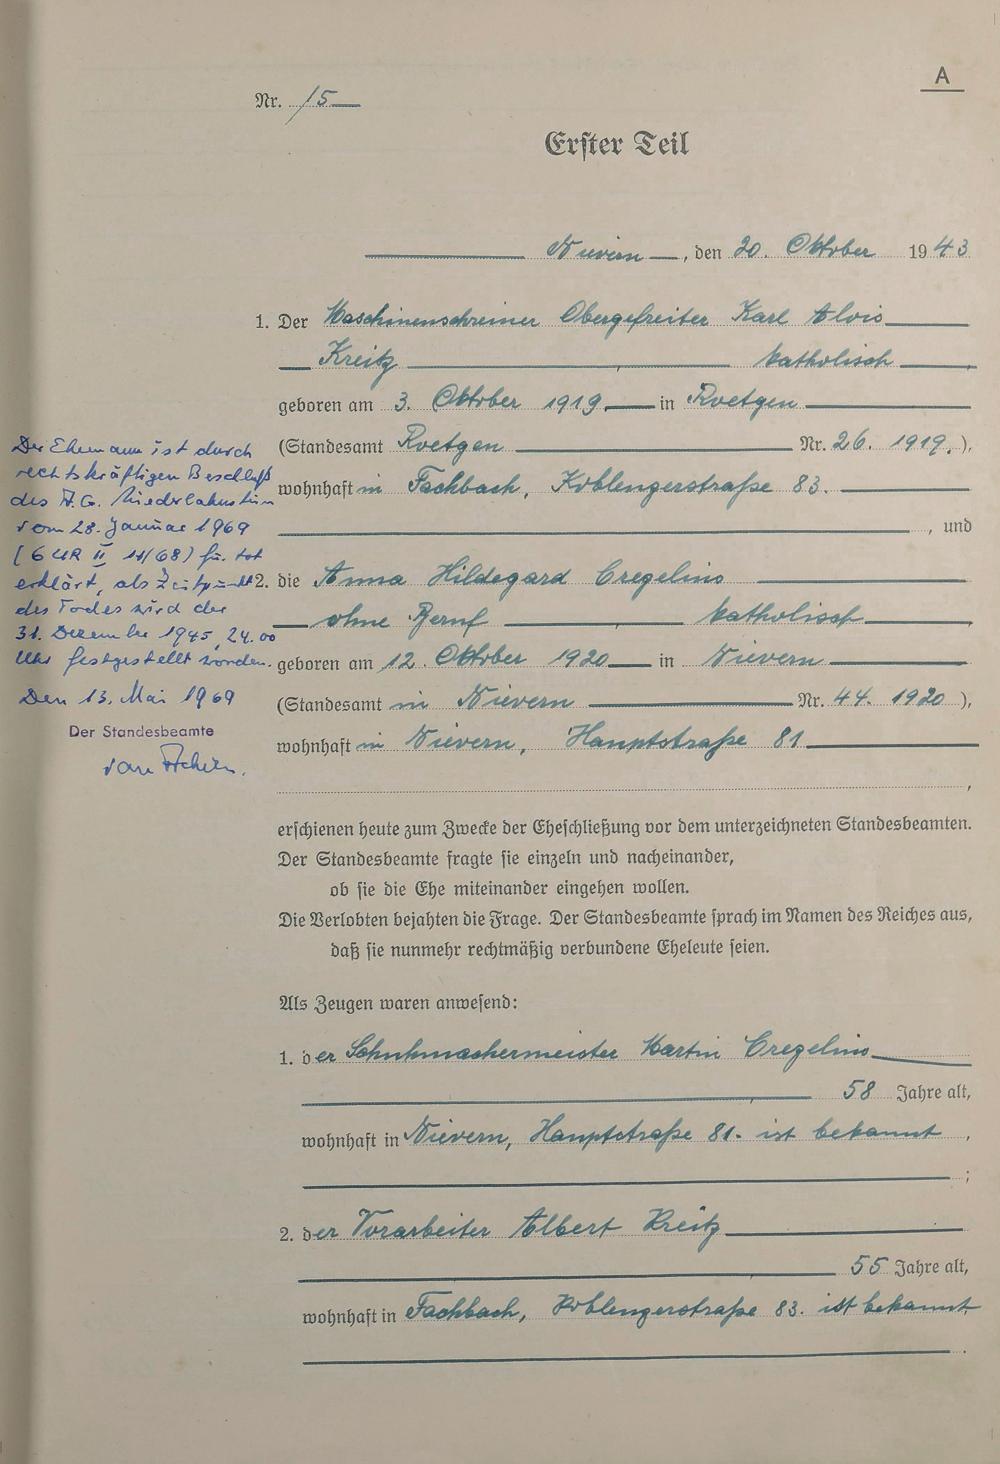 A
Nr. 15
Erster Teil
Nievern, den 20. Oktober 1943
1. Der Maschinenschreiner Obergefreiter Karl Alois
Kreitz katholisch
geboren am 3. Oktober 1919 in Roetgen
(Standesamt Roetgen Nr. 26. 1919.),
wohnhaft in Fachbach, Koblenzerstraße 83.
, und
2. die Anna Hildegard Gregelino
ohne Beruf katholisch
geboren am 12. Oktober 1920 in Nievern
(Standesamt in Nievern Nr. 44. 1920),
wohnhaft in Nievern, Hauptstraße 81
,
Der Ehemann ist durch
rechtskräftigen Beschluß
des A.G. Niederlahnstein
vom 28. Januar 1969
(6 UR II 11/68) für tot
erklärt, als Zeitpunkt
des Todes wird der
31. Dezember 1945, 24.00
Uhr festgestellt worden.
Den 13. Mai 1969
Der Standesbeamte
erschienen heute zum Zwecke der Eheschließung vor dem unterzeichneten Standesbeamten.
Der Standesbeamte fragte sie einzeln und nacheinander,
ob sie die Ehe miteinander eingehen wollen.
Die Verlobten bejahten die Frage. Der Standesbeamte sprach im Namen des Reiches aus,
daß sie nunmehr rechtmäßig verbundene Eheleute seien.
Als Zeugen waren anwesend:
1. der Schuhmachermeister Martin Gregelino
58 Jahre alt,
wohnhaft in Nievern, Hauptstraße 81. ist bekannt,
;
2. der Vorarbeiter Albert Kreitz
55 Jahre alt,
wohnhaft in Fachbach, Koblenzerstraße 83. ist bekannt
.